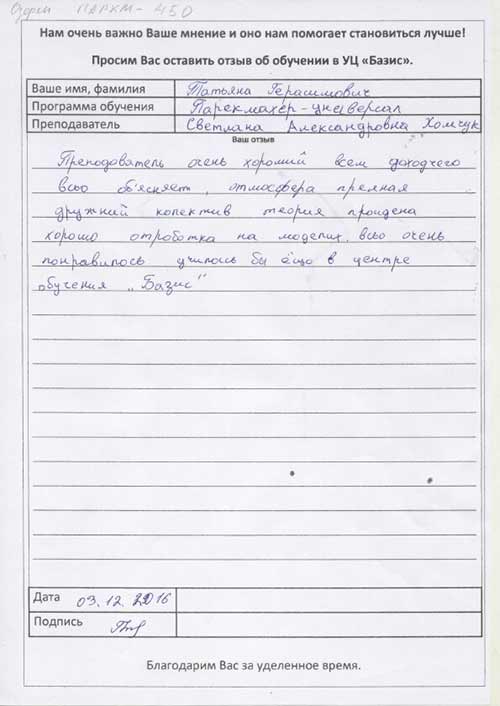 ПАРХМ - 450
Нам очень важно Ваше мнение и оно нам помогает становиться лучше!
Просим Вас оставить отзыв об обучении в УЦ «Базис».
Ваше имя, фамилия Татьяна Герасимович
Программа обучения Парекмахер-универсал
Преподаватель Светлана Александровна Хомчук
Ваш отзыв
Преподователь очень хороший всем доходчего
всьо объясняет, отмосфера преяная
дружний колектив теория пройдена
хорошо отроботка на моделих. всьо очень
понравилось училось бы ещо в центре
обучения „Базис"
Дата 03.12.2016
Подпись
Благодарим Вас за уделенное время.